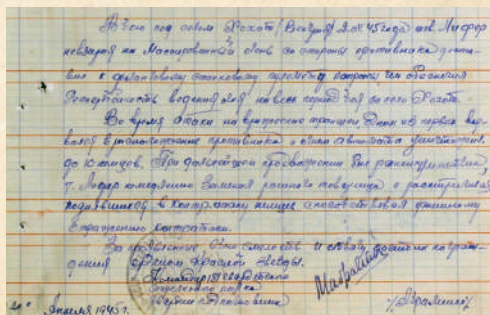 В бою под селом Хохот (Венгрия) 2.04.45 года тов. Лифер
невзирая на массированный огонь со стороны противника доста-
вил к станковому пулемету патроны, чем обеспечил
ведения огня на весь период боя за село Хохот.
Во время атаки на вражеские траншеи, один из первых вор-
вался в расположение противника и огнем автомата уничтожил
до 10 немцев. При дальнейшем продвижении был ранен
т. Лифер заменил раненого товарища и расстреливая
поднявшихся в контратаку немцев способствовал успешному
отражению контратаки.
За проявленные смелость и отвагу достоин награж-
дения орденом Красной Звезды.
Командир Гвардейского
Стрелкового полка
Гвардии подполковник
Апреля 1945 г. /Абрамшин/